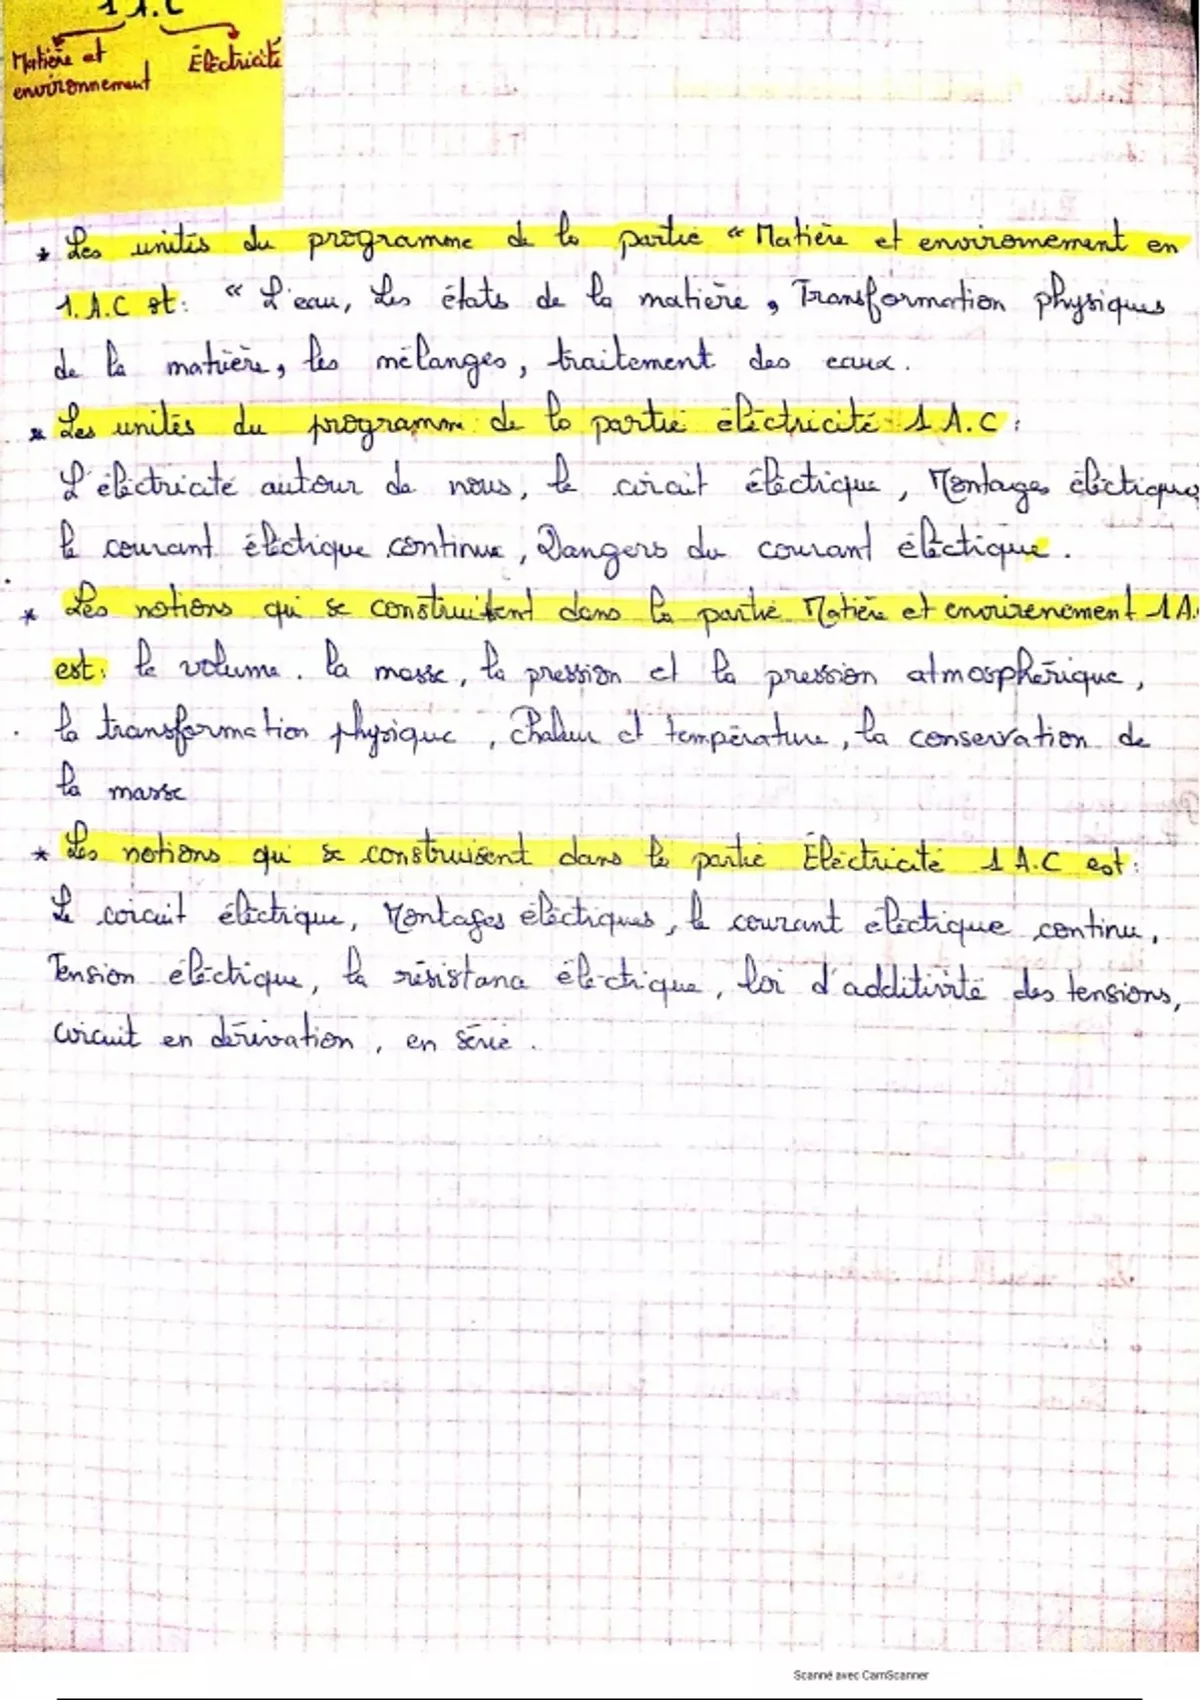 1 A.C
Matière et
environnement
Électricité
* Les unités du programme de la partie " Matière et environnement en
1. A.C st: " L'eau, Les états de la matière, Transformation physiques
de la matière, les mélanges, traitement des eaux.
* Les unités du programme de la partie électricité 1 A.C :
L'électricité autour de nous, le circuit électrique, Montages électriques
le courant électrique continue, Dangers du courant électrique.
* Les notions qui se construitent dans la partie Matière et environement 1 A.
est: le volume. la masse, la pression et la pression atmosphérique,
la transformation physique, Chaleur et température, la conservation de
la masse
* Les notions qui se construisent dans la partie Électricité 1 A.C est:
Le circuit électrique, Montages électriques, le courant électrique continu,
Tension électrique, la résistance électrique, loi d'additivité des tensions,
circuit en dérivation, en série.
Scanné avec CamScanner